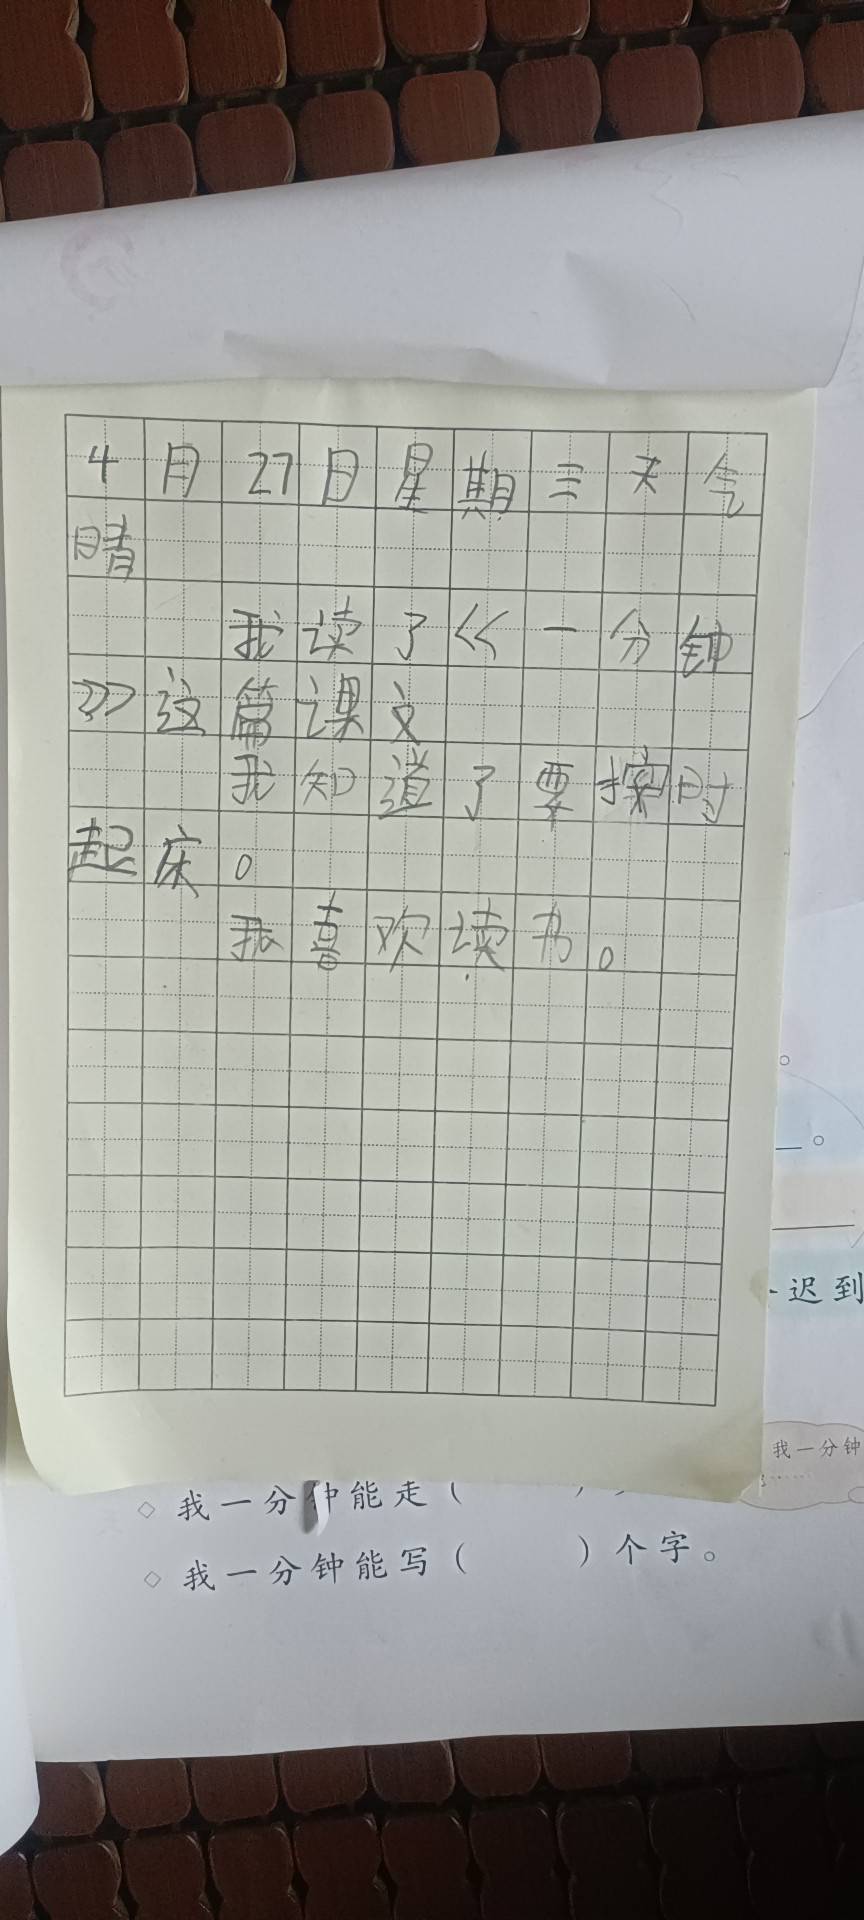 4月27日星期三天气
晴
我读了《一分钟
》这篇课文
我知道了要按时
起床。
我喜欢读书。
。
。
迟到
我一分钟
我一分钟能走(
)个字。
◇我一分钟能写(